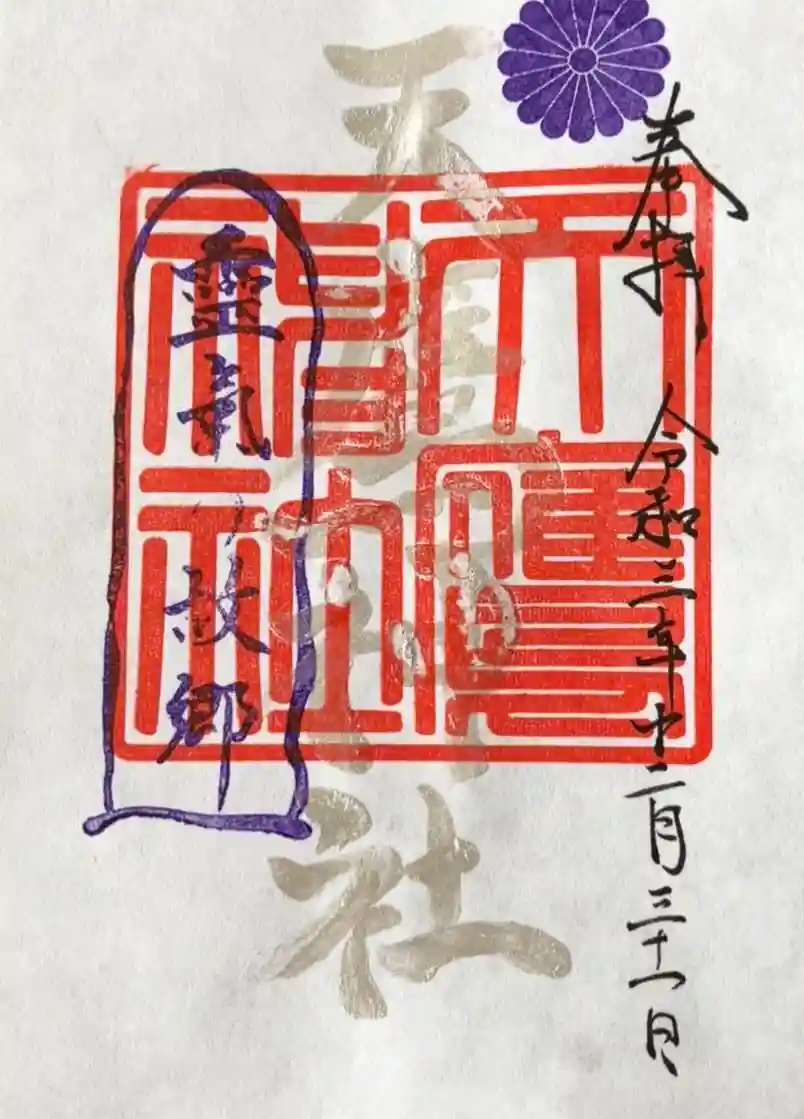 奉拝 令和三年十二月三十一日
天鷹神社
天鷹神社
霊氣の故郷